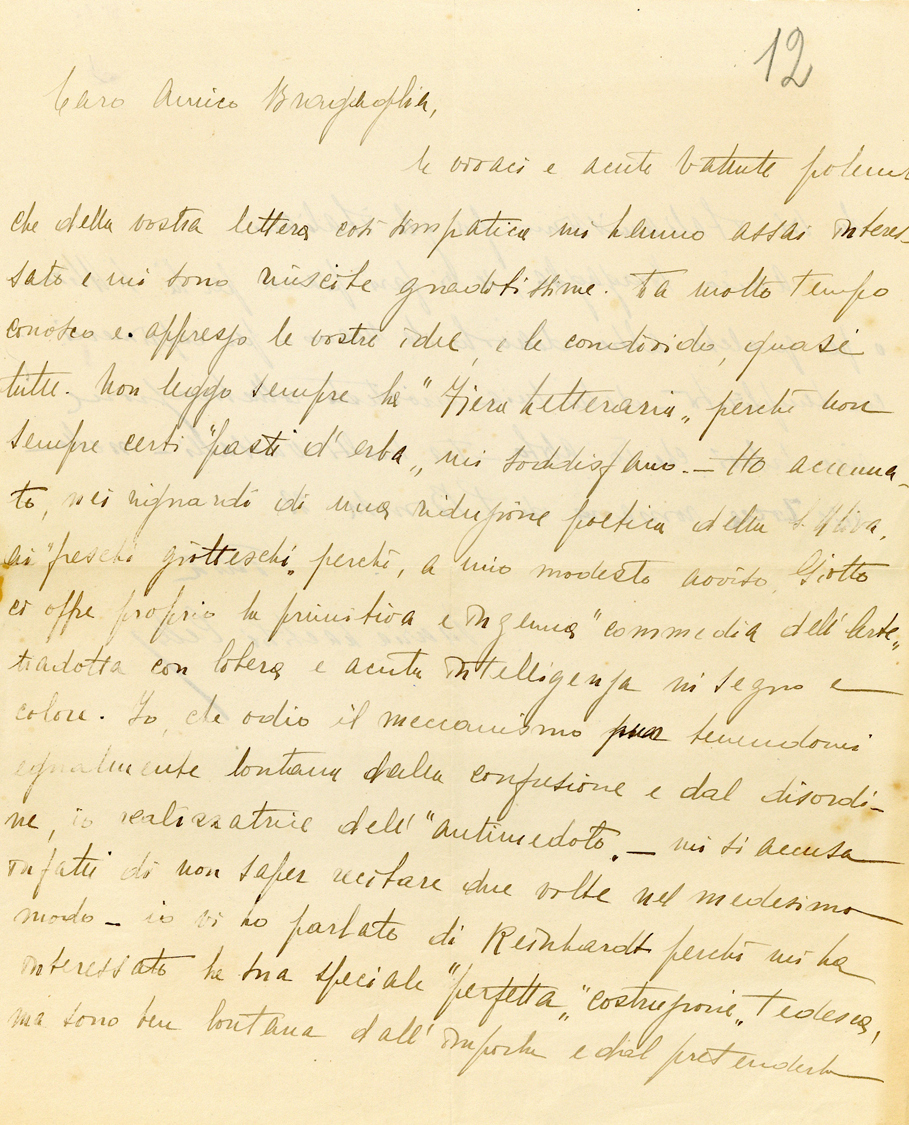 12
Caro Amico Bragaglia,
le vivaci e acute battute polemi
che della vostra lettera così simpatica mi hanno assai interes-
sato e mi sono riuscite graditissime. Da molto tempo
conosco e apprezzo le vostre idee, e le condivido, quasi
tutte. Non leggo sempre la "Fiera Letteraria" perchè non
sempre certi "pasti d'erba" mi soddisfano. - Ho accenna-
to, nei riguardi di una riduzione poetica della
ai "freschi giotteschi" perchè, a mio modesto avviso, Giotto
ci offre proprio la primitiva e ingenua "commedia dell'Arte"
tradotta con libera e acuta intelligenza in segno e
colore. Io, che odio il meccanismo pur tenendomi
egualmente lontana dalla confusione e dal disordi-
ne, io realizzatrice dell' "antimetodo" - mi si accusa
infatti di non saper recitare due volte nel medesimo
modo - io vi ho parlato di Reinhardt perchè mi ha
interessato la sua speciale "perfetta" "costruzione" tedesca,
ma sono ben lontana dall' imporla e dal pretenderla